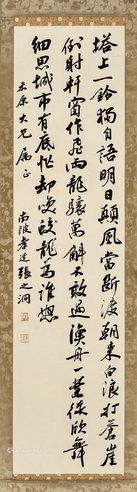 塔上一鈴獨自語明日顛風當斷渡朝來白浪打蒼崖
倒射軒窗作飛雨龍驤萬斛不敢過漁舟一葉從掀舞
細思城市有底忙却笑蛟龍為誰怒
木原大兄屬正
南皮孝達張之洞